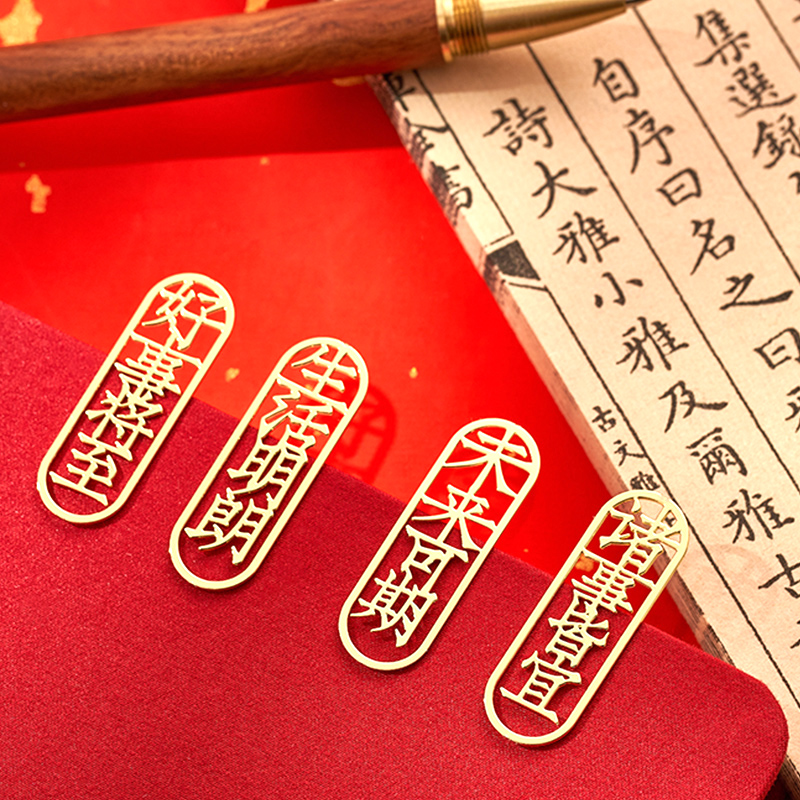 好事将至
生活明朗
未来可期
诸事皆宜
集選録
自序曰名之曰
詩大雅小雅及爾雅古
古文雅